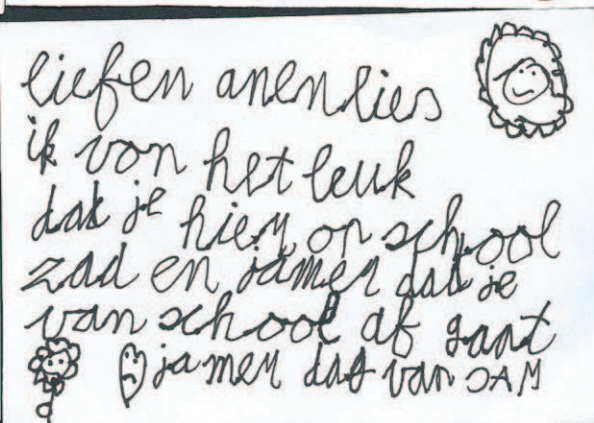 liefen anenlies
ik von het leuk
dat je hier op school
zad en jamer dat je
van school af gaat
jamer dat van SAM